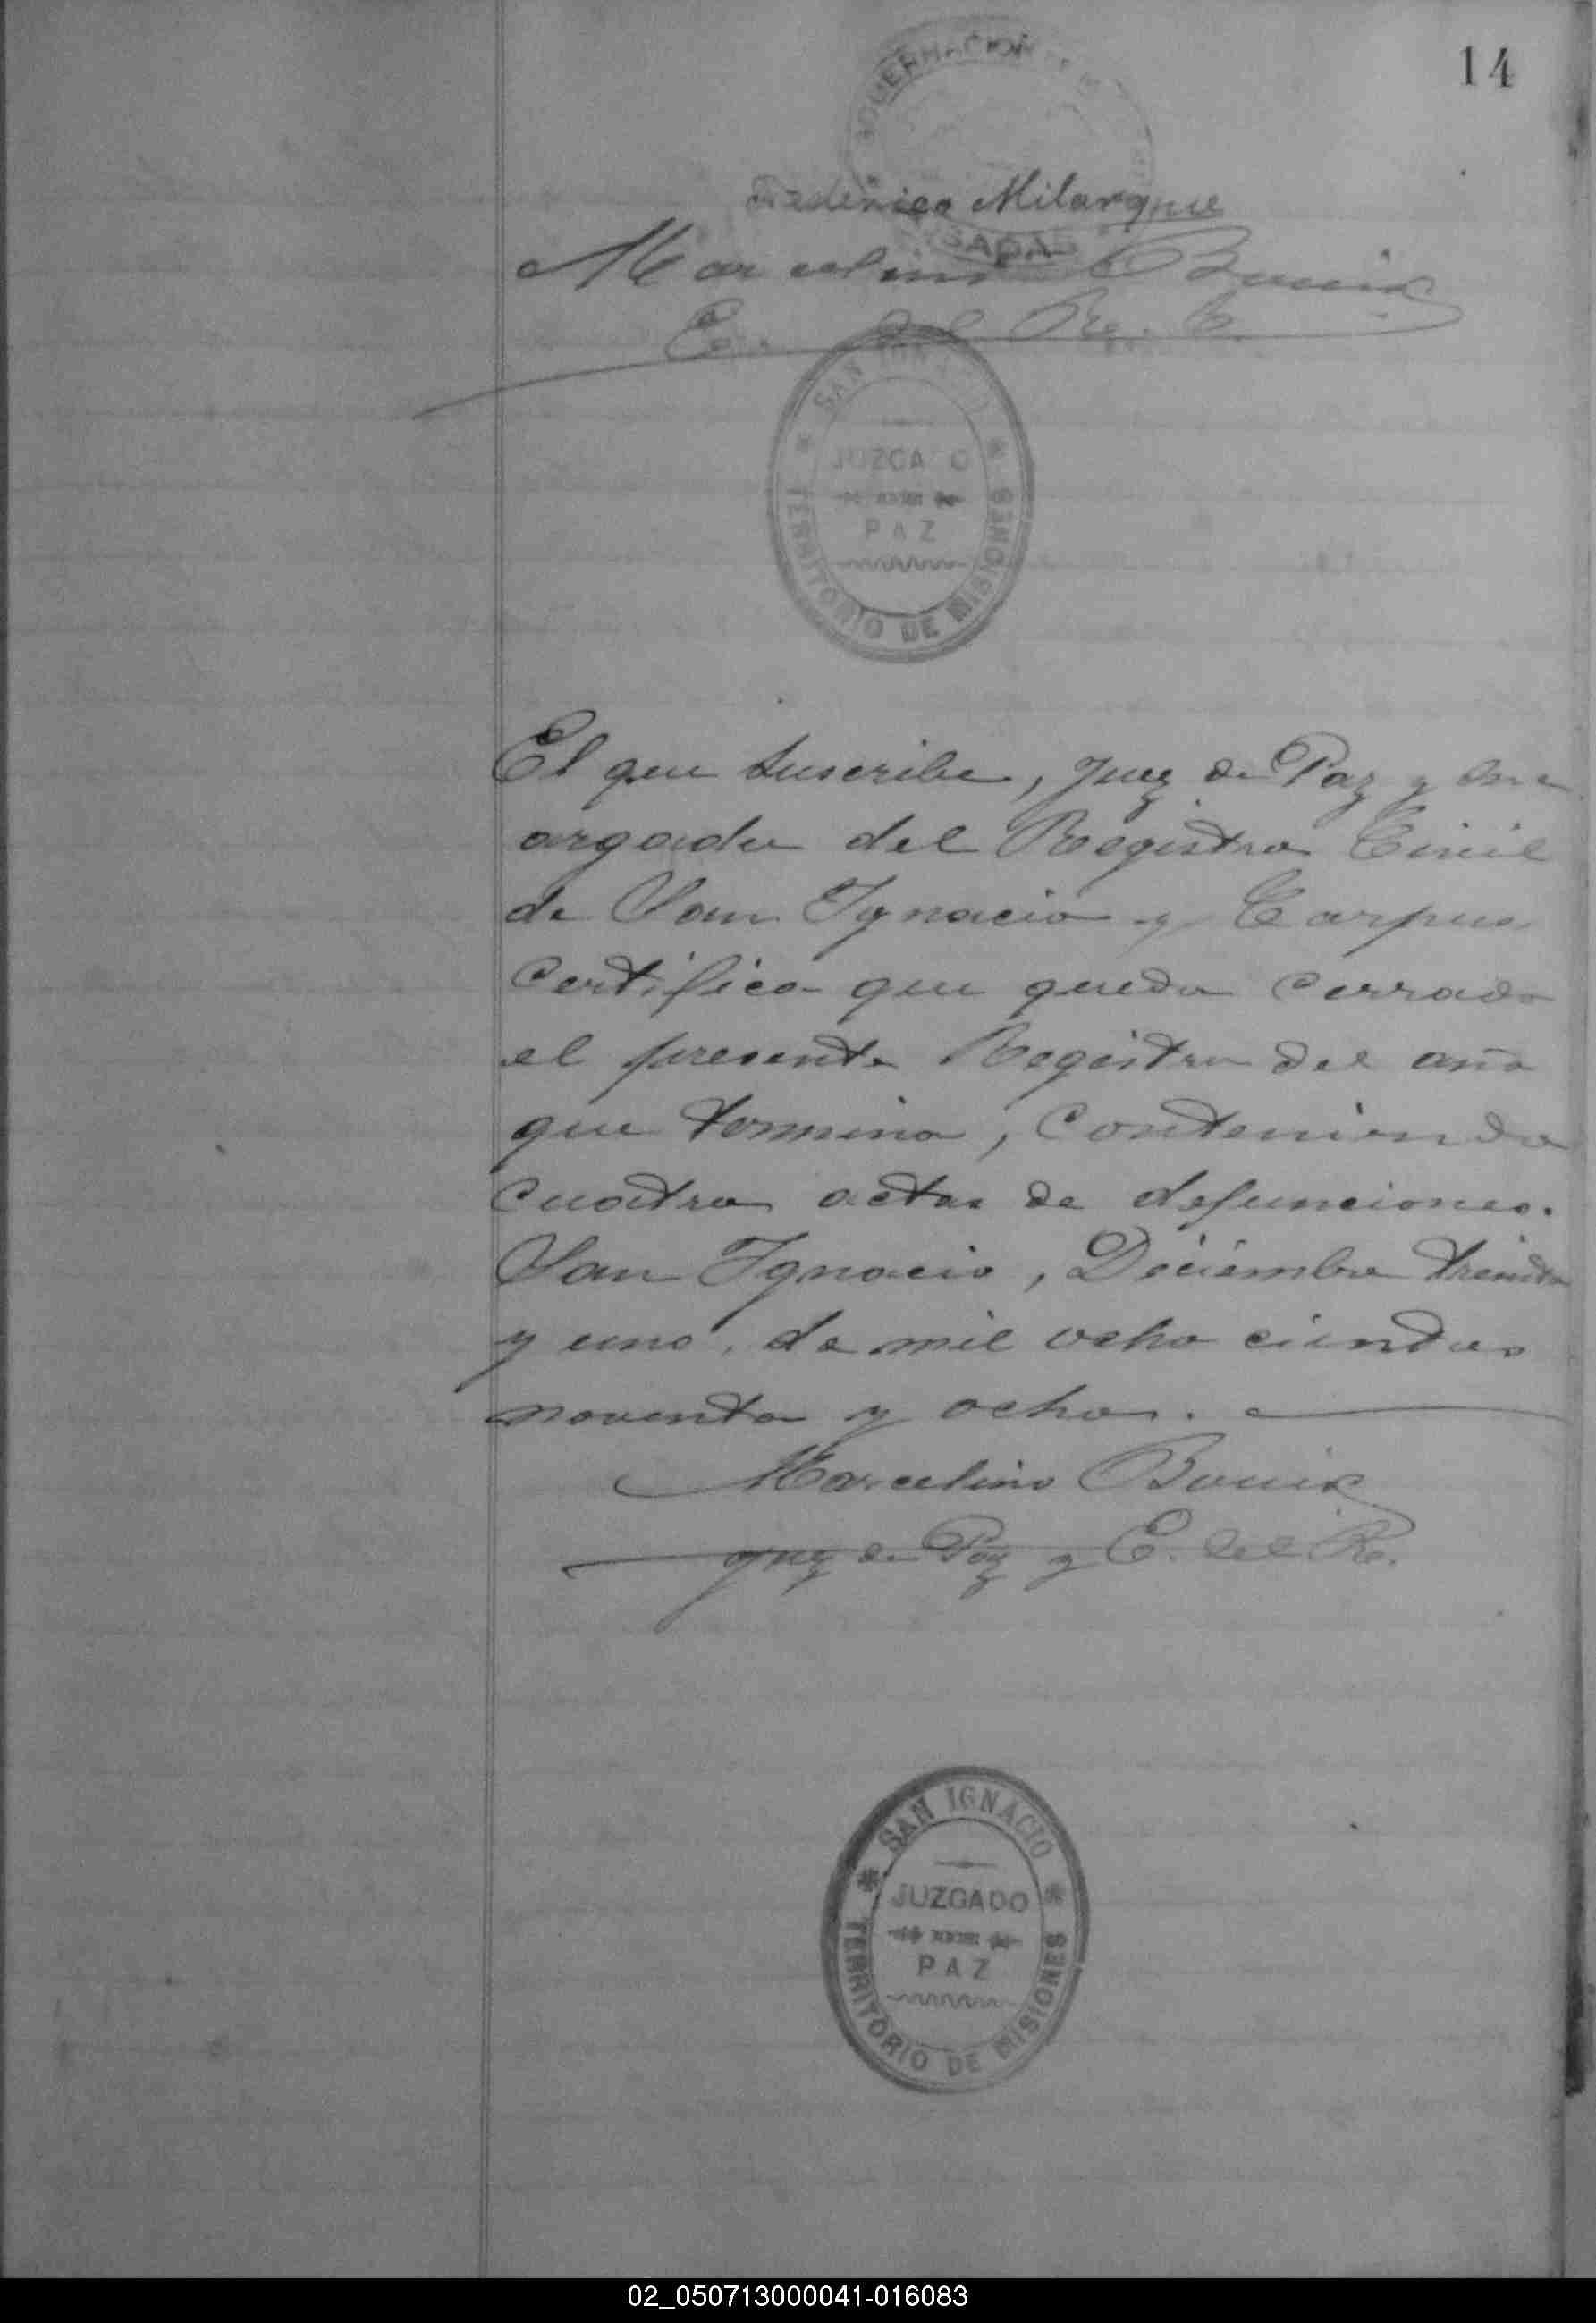 14
GOBERNACION
Federico Milarque
SADAS
Marcelino Bouix
E. del R. C.
SAN IGNACIO
JUZGADO
PAZ
TERRITORIO DE MISIONES
El que suscribe, Juez de Paz y enc
argado del Registro Civil
de San Ignacio y Corpus
Certifica que queda cerrado
el presente Registro del año
que termina, Conteniendo
cuatro actas de defunciones.
San Ignacio, Diciembre treinta
y uno, de mil ocho cientos
noventa y ocho.
Marcelino Bouix
Juez de Paz y E. del R.
SAN IGNACIO
JUZGADO
PAZ
TERRITORIO DE MISIONES
02_050713000041-016083